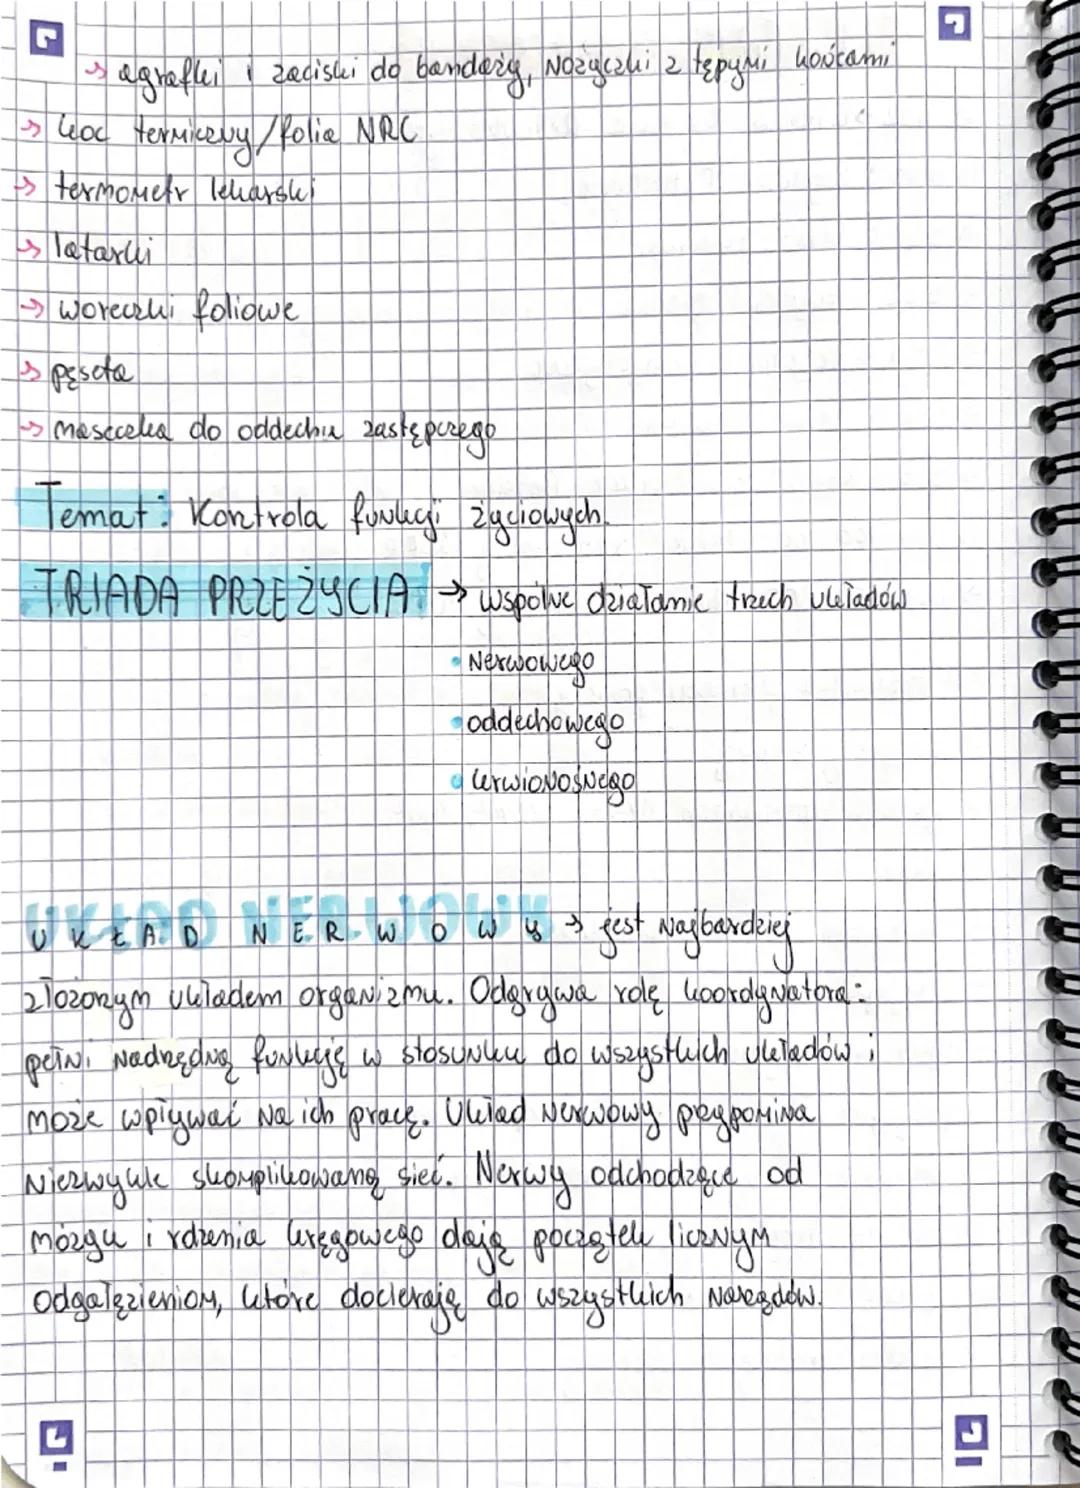 → agrafki i zaciski do bandaży, nożyczki z tępymi końcami
→ koc termiczny/folia NRC
→ termometr lekarski
→ latarki
→ woreczki foliowe
→ pęseta
→ maseczka do oddechu zastępczego
Temat: Kontrola funkcji życiowych.
TRIADA PRZEŻYCIA → wspólne działanie trzech układów
• nerwowego
• oddechowego
• krwionośnego
UKŁAD NERWOWY → jest najbardziej
złożonym układem organizmu. Odgrywa rolę koordynatora:
pełni nadrzędną funkcję w stosunku do wszystkich układów i
może wpływać na ich pracę. Układ nerwowy przypomina
niezwykle skomplikowaną sieć. Nerwy odchodzące od
mózgu i rdzenia kręgowego dają początek licznym
odgałęzieniom, które docierają do wszystkich narządów.